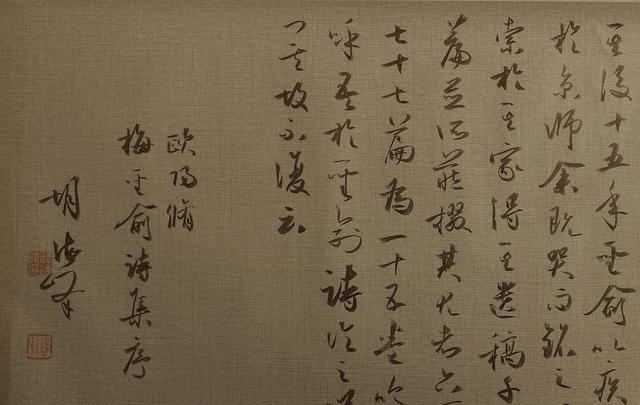 其後十五年聖俞以疾
於京師余既哭而銘之
索於其家得其遺稿千
篇並所藏掇其尤者六
七十七篇為一十五卷嗚
呼吾於聖俞詩論之
故不復云
歐陽脩
梅聖俞詩集序
胡